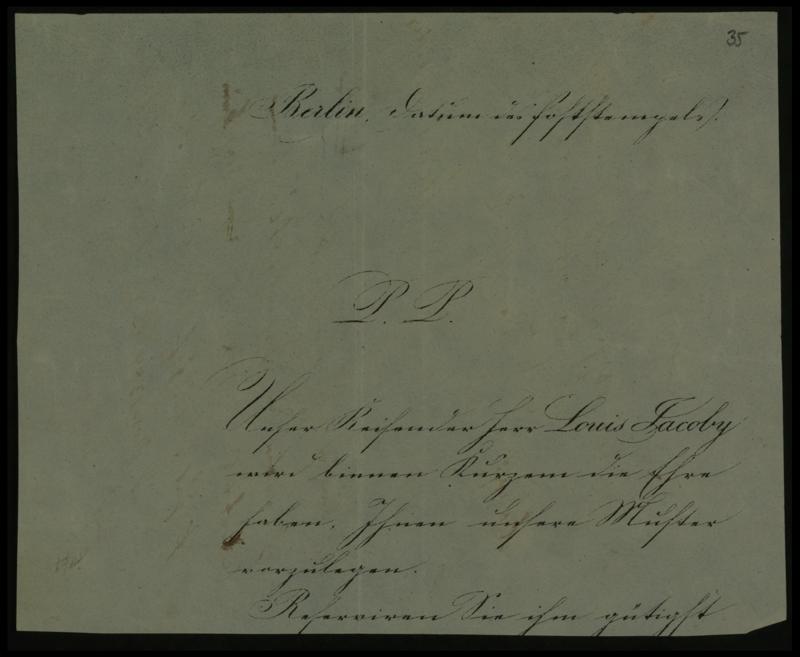 35
Berlin, Datum des Poststempels.
P. P.
Unser Reisender Herr Louis Jacoby
wird binnen Kurzem die Ehre
haben, Ihnen unsere Muster
vorzulegen.
Reserviren Sie ihm gütigst